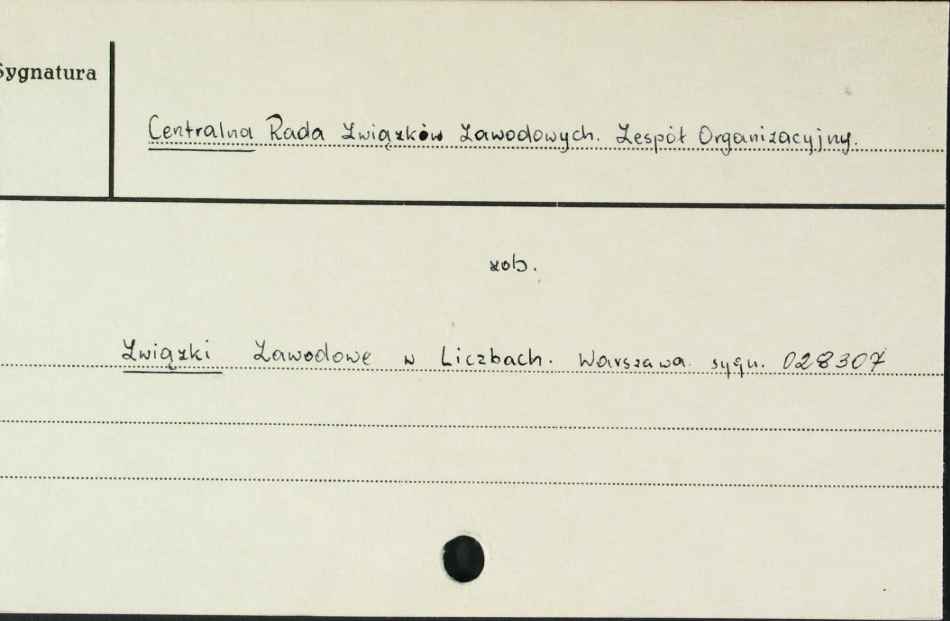 Sygnatura
Centralna Rada Związków Zawodowych. Zespół Organizacyjny.
zob.
Związki Zawodowe w Liczbach. Warszawa. sygn. 028307